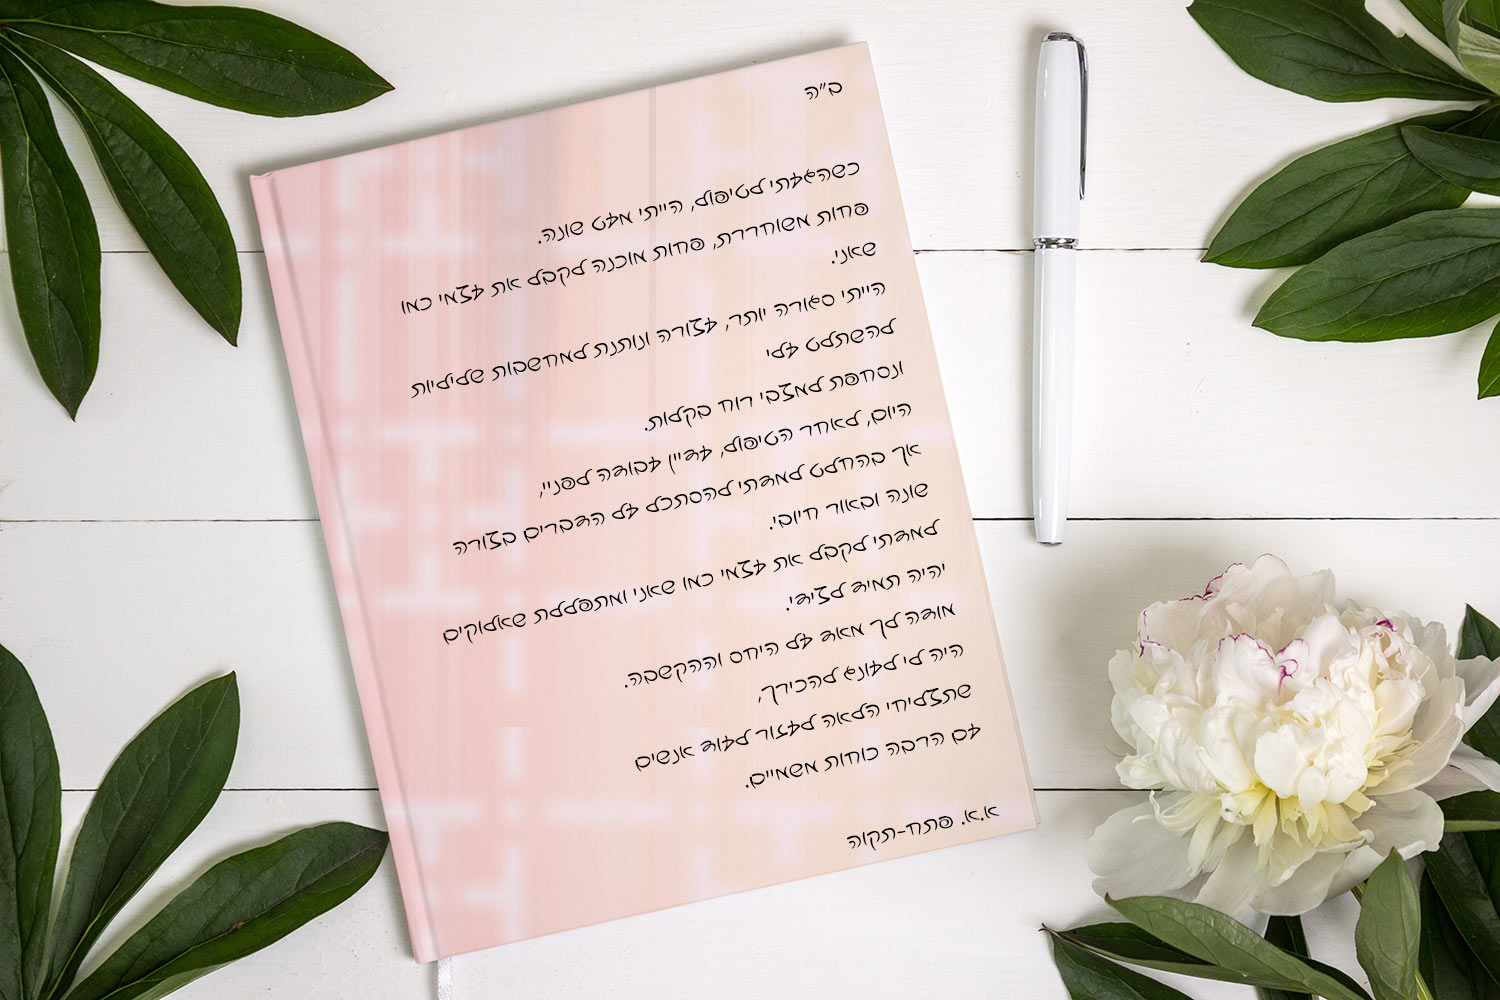 ב"ה
כשהגעתי לטיפול, הייתי מעט שונה.
פחות משוחררת, פחות מוכנה לקבל את עצמי כמו
שאני.
הייתי סגורה יותר, עצורה ונותנת למחשבות שליליות
להשתלט עלי
ונסחפת למצבי רוח בקלות.
היום, לאחר הטיפול, עדיין עבודה לפניי,
אך בהחלט למדתי להסתכל על הדברים בצורה
שונה ובאור חיובי.
למדתי לקבל את עצמי כמו שאני ומתפללת שאלוקים
יהיה תמיד לצידי.
מודה לך מאוד על היחס וההקשבה.
היה לי לעונג להכירך,
שתצליחי הלאה לעזור לעוד אנשים
עם הרבה כוחות משמיים.
א.א. פתח-תקוה